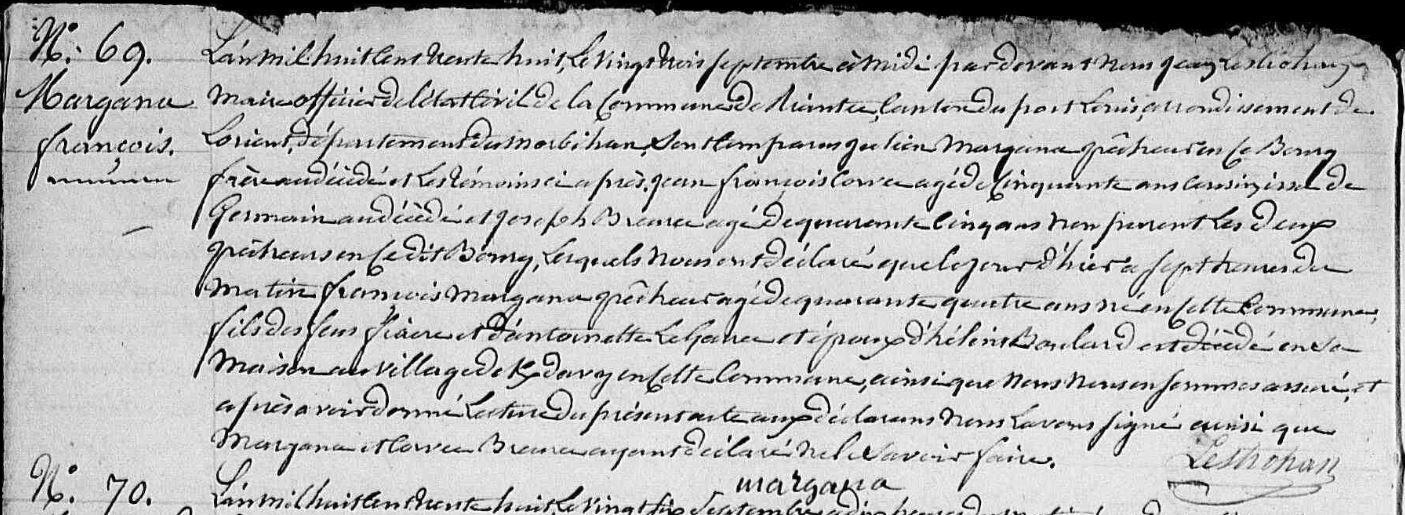 N.º 69.
Margana
françois.
L'an mil huit cent trente huit, le vingt trois septembre à midi par devant Nous Jean Lestrohan
Maire officier de l'état Civil de la Commune de Riantec, Canton du port Louis, arrondissement de
Lorient, département du Morbihan, Sont Comparus Julien Margana pêcheur en ce Bourg
frère au dédédé et les témoins ci après, jean françois Corvec agé de Cinquante ans Cousin issu de
Germain au dédédé et joseph agé de quarante Cinq ans non parent les deux
pêcheurs en ce dit Bourg, Lesquels Nous ont déclaré que le jour d'hier a sept heures du
Matin françois Margana pêcheur agé de quarante quatre ans né en cette Commune,
fils des feus fiacre et d'antoinette et époux d'hélène est dédédé en sa
Maison au village de en cette Commune, ainsi que Nous Nous en sommes assuré, et
après avoir donné Lecture du présent acte aux déclarans Nous L'avons signé ainsi que
Margana et Corvec ayant déclaré ne le Savoir faire.
Lestrohan
margana
N.º 70.
L'an mil huit cent trente huit, le vingt six Septembre